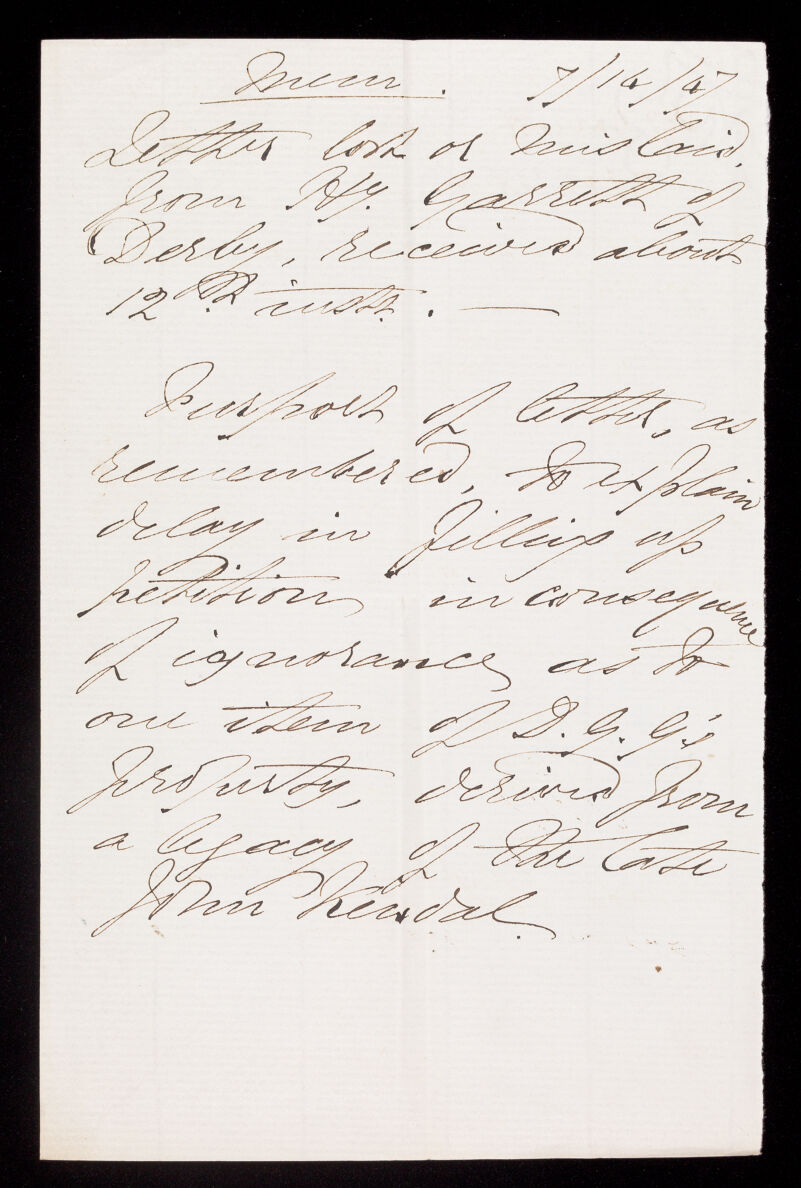 Mem. 7/14/47
Letter lost or mislaid,
from Hy. Garrett of
Derby, received about
12th inst. —
Purport of letter, as
remembered, to explain
delay in filling up
petition in consequence
of ignorance as to
one item of D. G. G's
property, derived from
a legacy of the late
John Kendal.